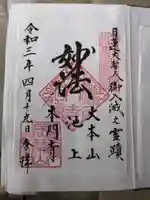 日蓮大聖人御入滅之霊跡
妙法
大本山
池上
本門寺
令和三年四月十九日参拝